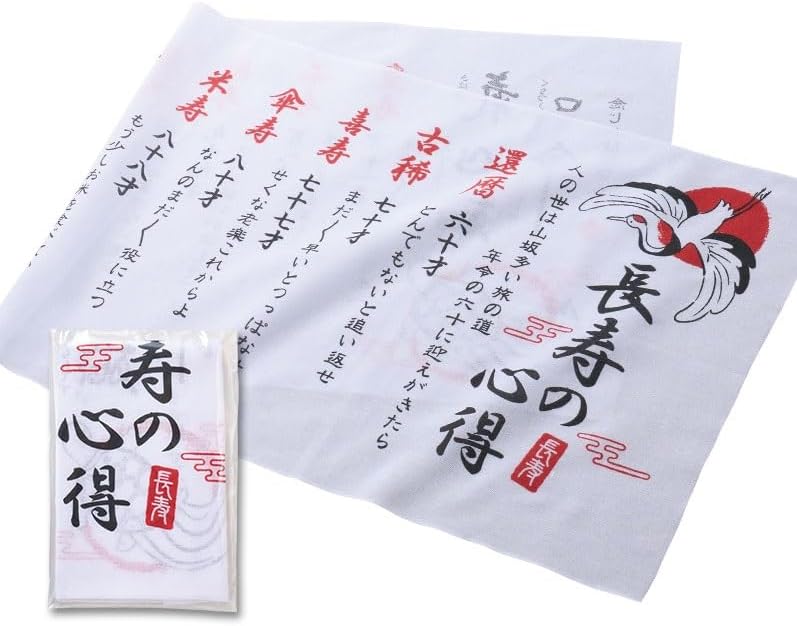 長寿の
心得
長寿
人の世は山坂多い旅の道
年命の六十に迎えがきたら
還暦
六十才
とんでもないと追い返せ
古稀
七十才
まだ〱早いとつっぱなせ
喜寿
七十七才
せくな老楽これからよ
傘寿
八十才
なんのまだ〱役に立つ
米寿
八十八才
もう少しお米を
寿の
心得
長寿